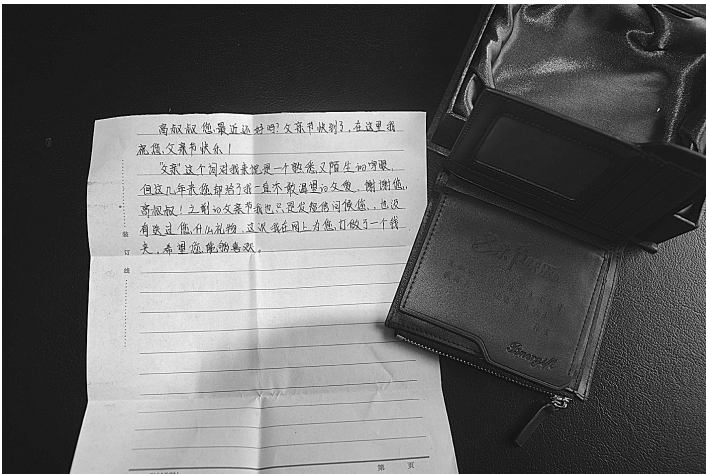 高叔叔您最近还好吗？父亲节快到了，在这里我
祝您父亲节快乐！
“父亲”这个词对我来说是一个熟悉又陌生的字眼，
但这几年来您却给了我一直不敢渴望的父爱，谢谢您，
高叔叔！之前的父亲节我也只是发短信问候您，也没
有送过您什么礼物，这次我在网上为您打做了一个钱
夹，希望您能够喜欢。
装
订
线
第 页